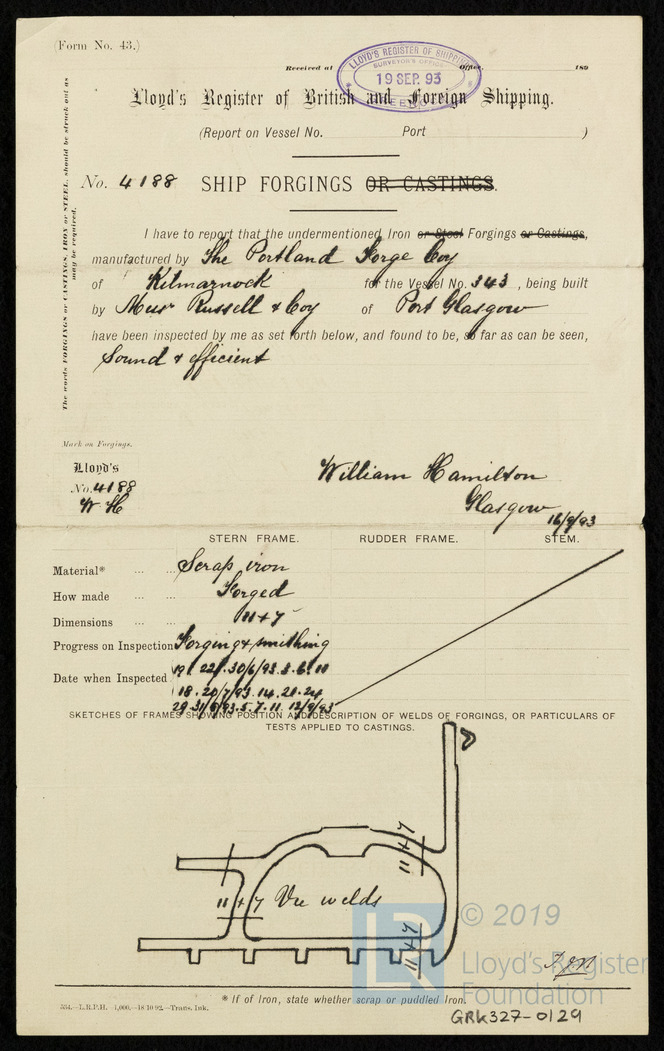 (Form No. 43.)
LLOYD'S REGISTER OF SHIPPING
SURVEYOR'S OFFICE
19 SEP. 93
GREENOCK
Received at Office, 189
Lloyd's Register of British and Foreign Shipping.
(Report on Vessel No. Port )
The words FORGINGS or CASTINGS, IRON or STEEL, should be struck out as may be required.
No. 4188 SHIP FORGINGS OR CASTINGS.
I have to report that the undermentioned Iron or Steel Forgings or Castings,
manufactured by The Portland Forge Coy
of Kilmarnock for the Vessel No. 343, being built
by Messrs Russell & Coy of Port Glasgow
have been inspected by me as set forth below, and found to be, so far as can be seen,
Sound & efficient
Mark on Forgings.
Lloyd's
No. 4188
WH
William Hamilton
Glasgow 16/9/93
STERN FRAME. RUDDER FRAME. STEM.
Material* ... ... Scrap iron
How made ... ... Forged
Dimensions ... ... 11 + 7
Progress on Inspection Forging & smithing
Date when Inspected 19. 22. 30/6/93. 3. 6. 11
18. 20/7/93. 14. 21. 24
29. 31/8/93. 5. 7. 11. 12/9/93
SKETCHES OF FRAMES SHOWING POSITION AND DESCRIPTION OF WELDS OF FORGINGS, OR PARTICULARS OF
TESTS APPLIED TO CASTINGS.
11 + 7
11 + 7 Vee welds
11 + 7
LR
© 2019
Lloyd's Register
Foundation
* If of Iron, state whether scrap or puddled Iron.
554.—L.R.P.H. 1,000.—18 10 92.—Trans. Ink.
GRK327-0129